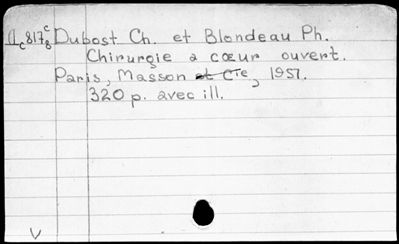 Dubost Ch. et Blondeau Ph.
Chirurgie a cœur ouvert.
Paris, Masson et Cie, 1957.
320 p. avec ill.
V